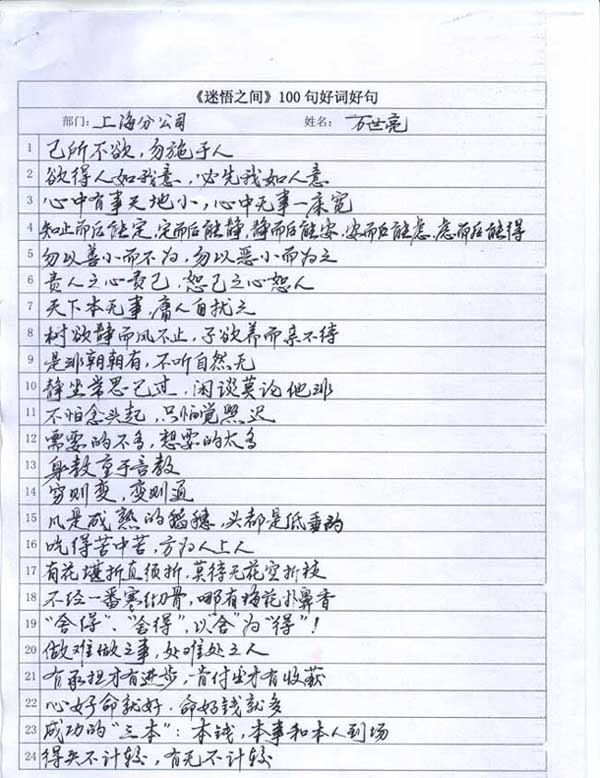 《迷悟之间》100句好词好句
部门：上海分公司 姓名：万世亮
1 己所不欲，勿施于人
2 欲得人如我意，必先我如人意
3 心中有事天地小，心中无事一床宽
4 知止而后能定，定而后能静，静而后能安，安而后能虑，虑而后能得
5 勿以善小而不为，勿以恶小而为之
6 责人之心责己，恕己之心恕人
7 天下本无事，庸人自扰之
8 树欲静而风不止，子欲养而亲不待
9 是非朝朝有，不听自然无
10 静坐常思己过，闲谈莫论他非
11 不怕念头起，只怕觉照迟
12 需要的不多，想要的太多
13 身教重于言教
14 穷则变，变则通
15 凡是成熟的稻穗，头都是低垂的
16 吃得苦中苦，方为人上人
17 有花堪折直须折，莫待无花空折枝
18 不经一番寒彻骨，哪有梅花扑鼻香
19 “舍得”、“舍得”，以“舍”为“得”！
20 做难做之事，处难处之人
21 有承担才有进步，肯付出才有收获
22 心好命就好，命好钱就多
23 成功的“三本”：本钱，本事和本人到场
24 得失不计较，有无不计较